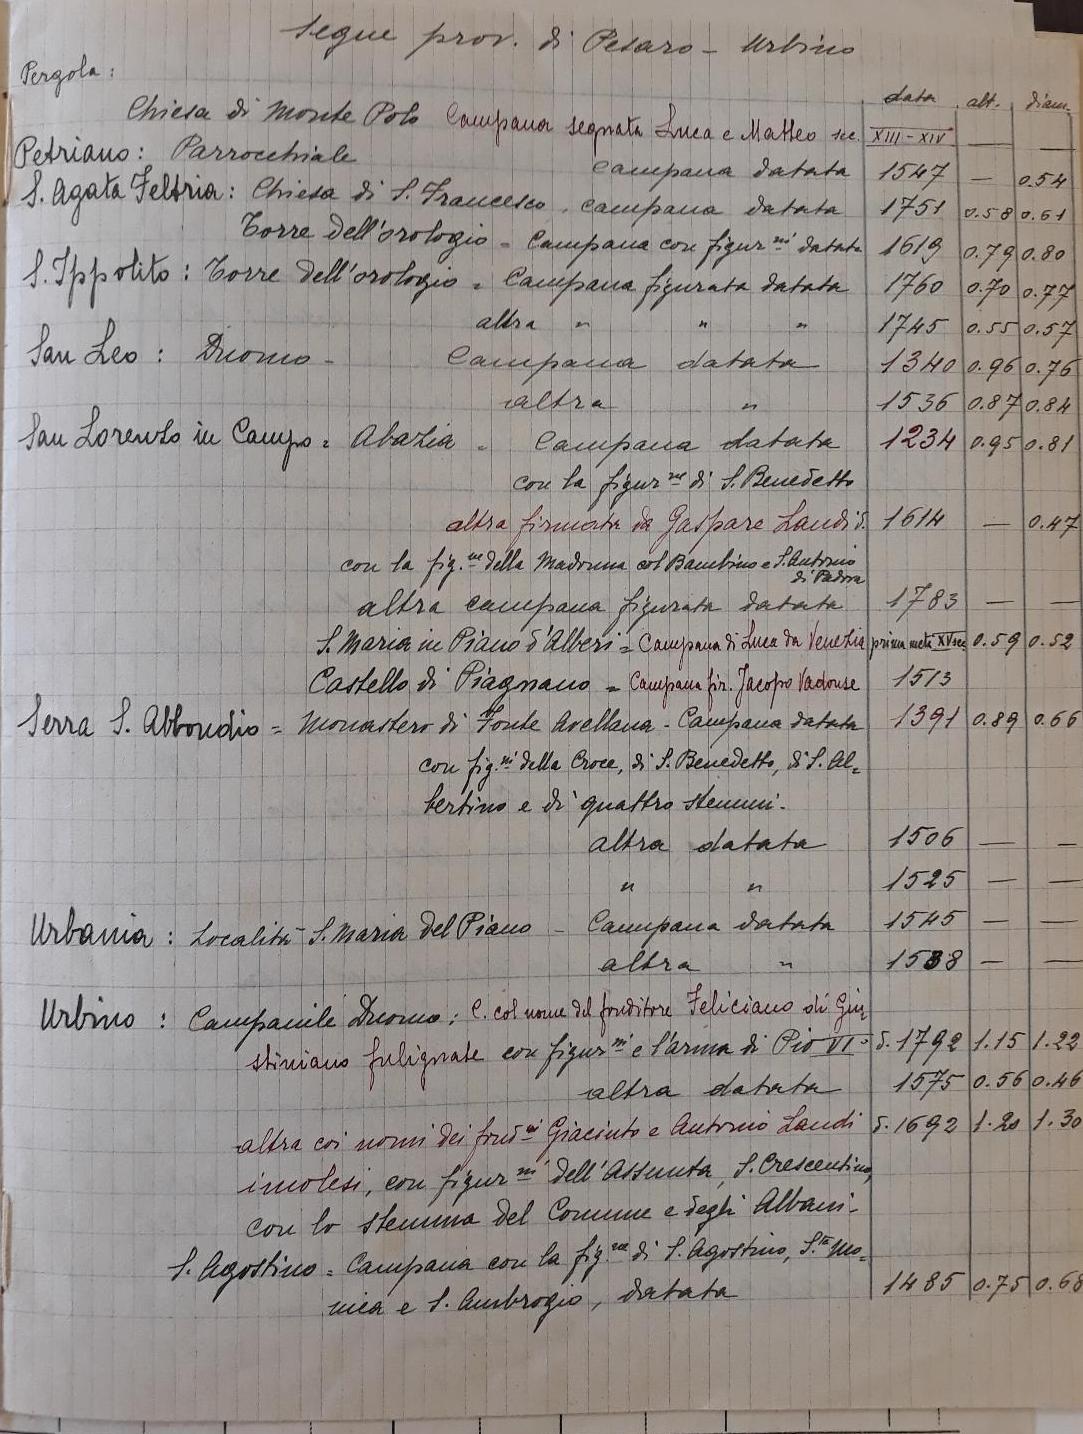 Segue prov. di Pesaro - Urbino
Pergola:
data alt. diam.
Chiesa di Monte Polo Campana segnata Luca e Matteo sec. XIII - XIV — —
Petriano: Parrocchiale campana datata 1547 — 0.54
S. Agata Feltria: Chiesa di S. Francesco. campana datata 1751 0.58 0.61
Torre dell'orologio = Campana con figur.ni datata 1619 0.79 0.80
S. Ippolito: Torre dell'orologio = Campana figurata datata 1760 0.70 0.77
altra " " " 1745 0.55 0.57
San Leo: Duomo - Campana datata 1340 0.96 0.76
altra " 1536 0.87 0.84
San Lorenzo in Campo = Abazia = Campana datata 1234 0.95 0.81
con la figur.ne di S. Benedetto
altra firmata da Gaspare Landi d. 1614 — 0.47
con la fig.ne della Madonna col Bambino e S. Antonio
di Padova
altra campana figurata datata 1783 — —
S. Maria in Piano d'Alberi = Campana di Luca da Venezia prima metà XV sec. 0.59 0.52
Castello di Piagnano = Campana fir. Jacopo 1513
Serra S. Abbondio = Monastero di Fonte Avellana - Campana datata 1391 0.89 0.66
con fig.ni della Croce, di S. Benedetto, di S. Al=
bertino e di quattro stemmi.
altra datata 1506 — —
" " 1525 — —
Urbania: Località S. Maria del Piano - Campana datata 1545 — —
altra " 1538 — —
Urbino: Campanile Duomo: C. col nome del fonditore Feliciano di Giu
stiniano fulignate con figur.ni e l'arma di Pio VI- d. 1792 1.15 1.22
altra datata 1575 0.56 0.46
altra coi nomi dei fond.ri Giacinto e Antonio Landi d. 1692 1.20 1.30
imolesi, con figur.ni dell'Assunta, S. Crescentino,
con lo stemma del Comune e degli Albani.
S. Agostino = Campana con la fig.ne di S. Agostino, S.ta Mo=
nica e S. Ambrogio, datata 1485 0.75 0.68